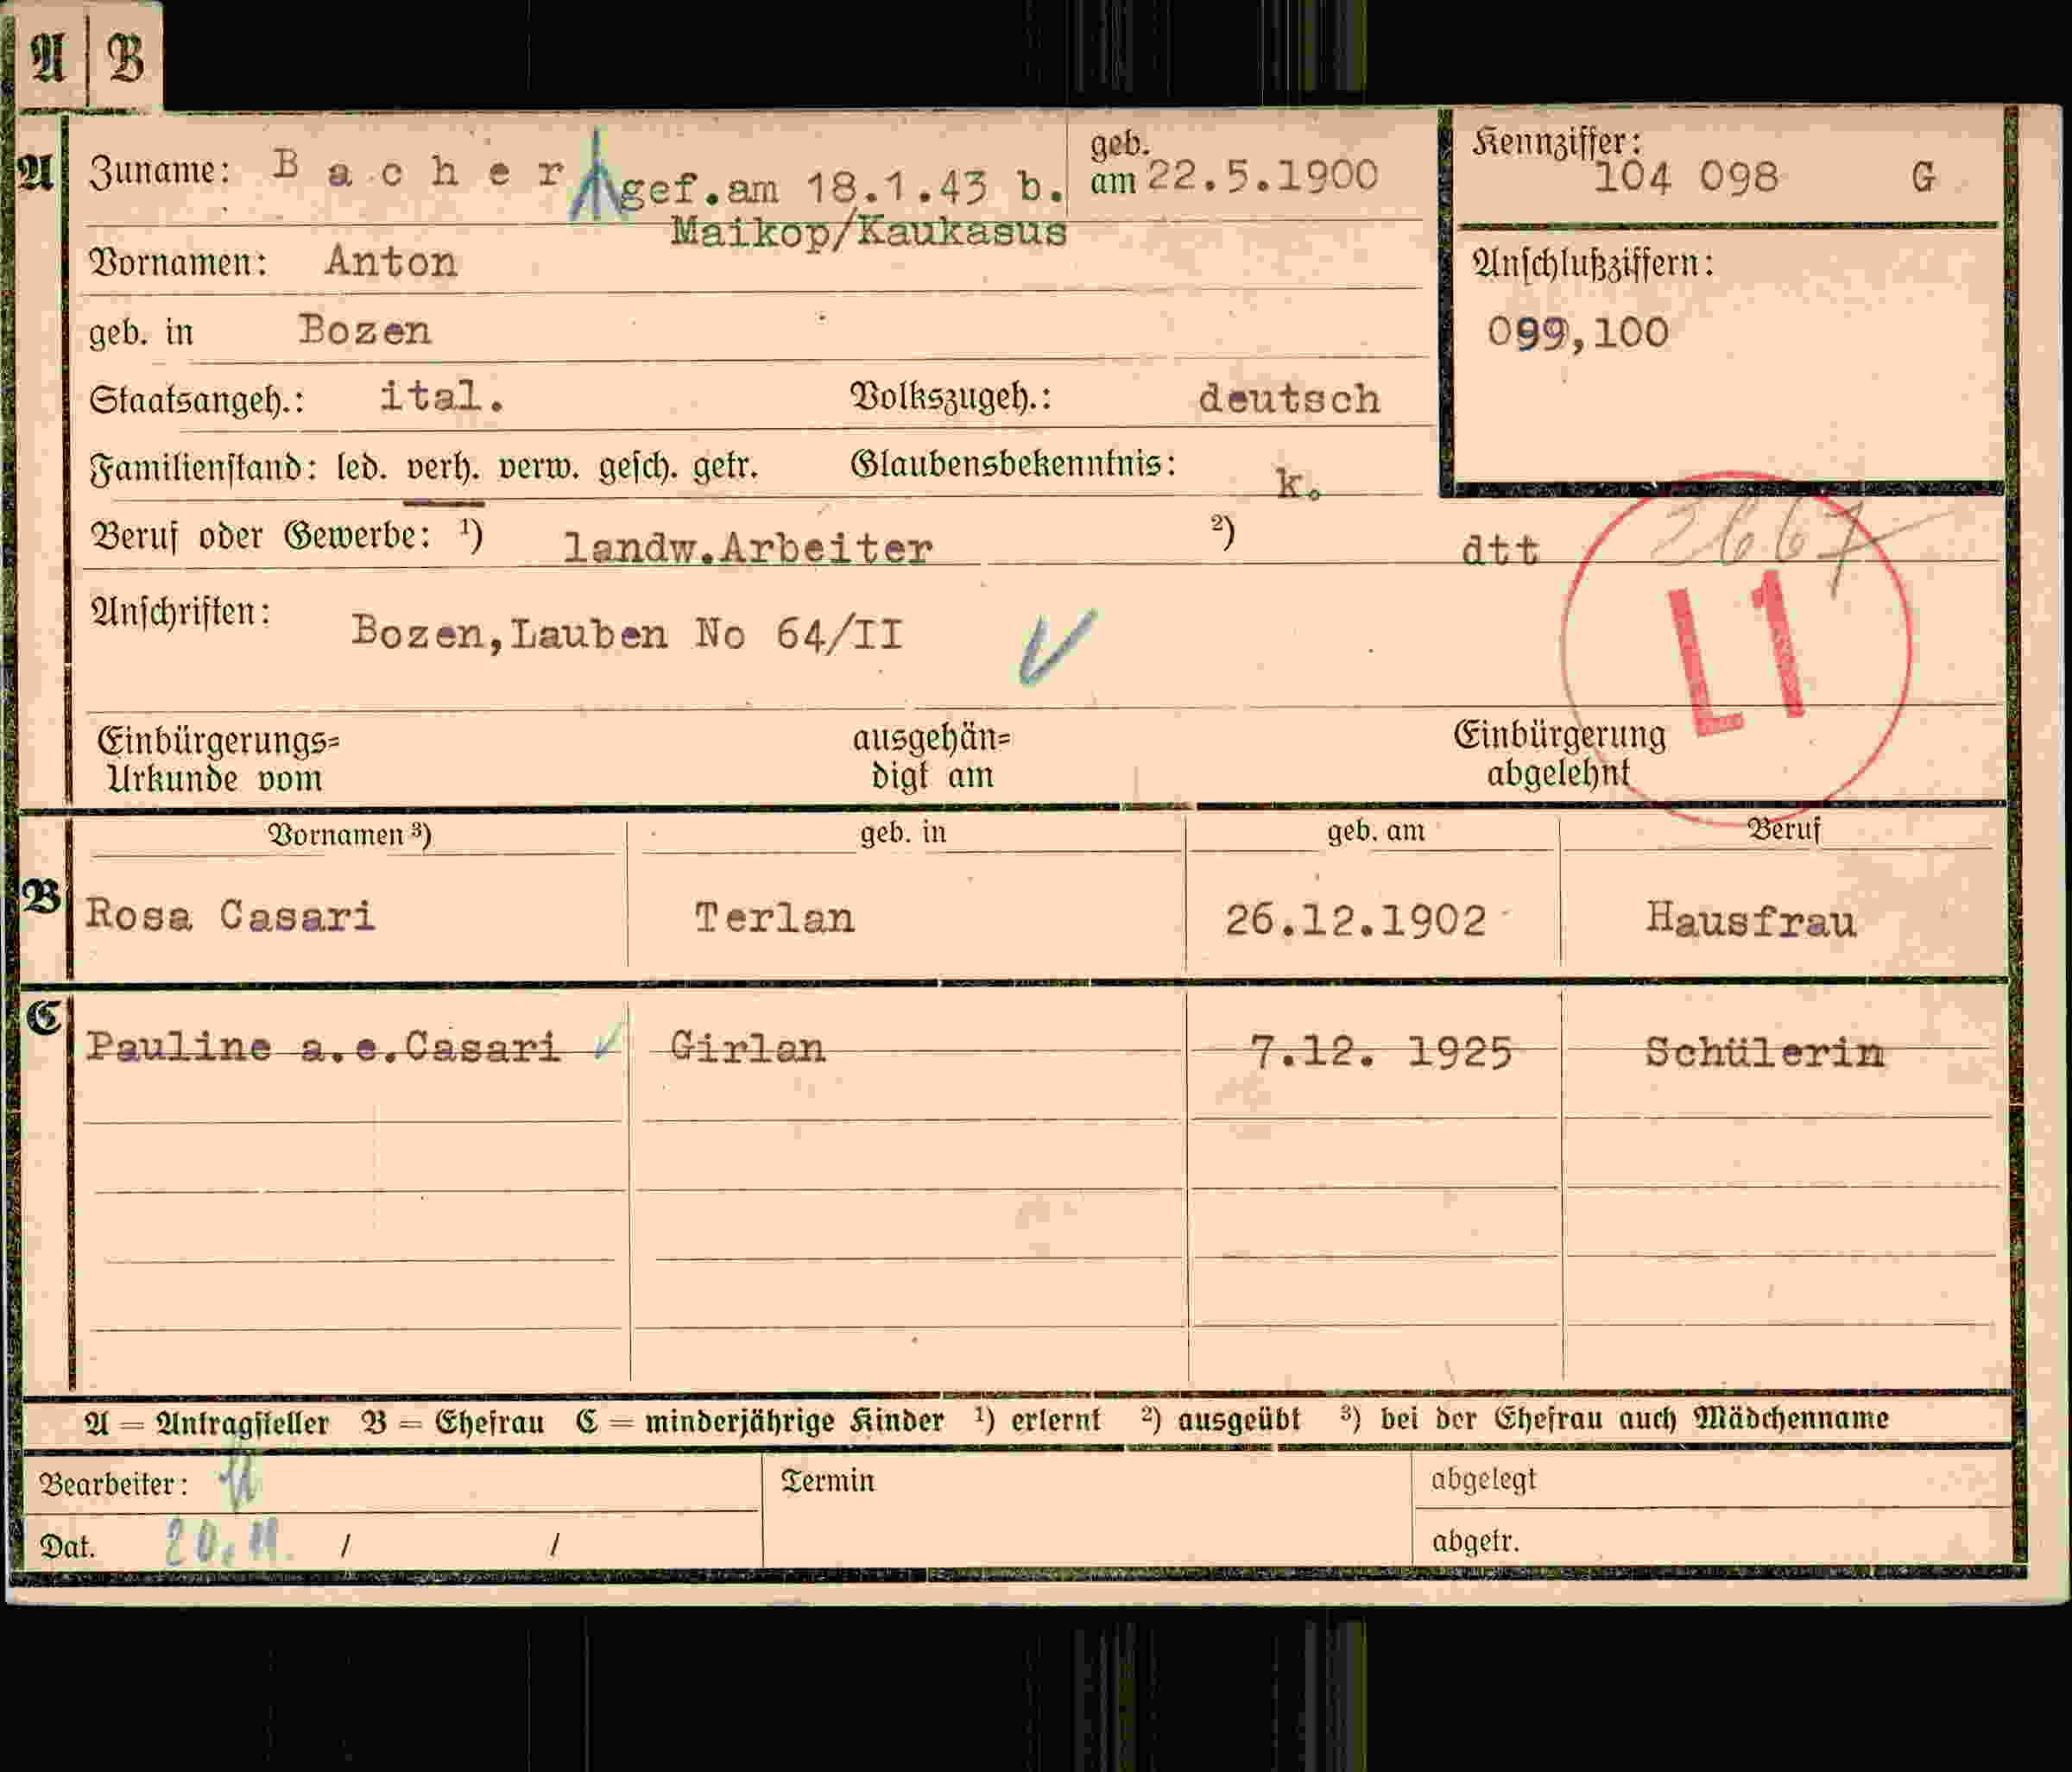 A B
A Zuname: Bacher gef.am 18.1.43 b. geb. am 22.5.1900
Maikop/Kaukasus
Kennziffer: 104 098 G
Vornamen: Anton
Anschlußziffern:
099,100
geb. in Bozen
Staatsangeh.: ital. Volkszugeh.: deutsch
Familienstand: led. verh. verw. gesch. getr. Glaubensbekenntnis: k.
Beruf oder Gewerbe: ¹) landw.Arbeiter ²) dtt
2667
Anschriften: Bozen,Lauben No 64/II
L1
Einbürgerungs= ausgehän= Einbürgerung
Urkunde vom digt am abgelehnt
Vornamen ³) geb. in geb. am Beruf
B Rosa Casari Terlan 26.12.1902 Hausfrau
C Pauline a.e.Casari Girlan 7.12. 1925 Schülerin
A = Antragsteller B = Ehefrau C = minderjährige Kinder ¹) erlernt ²) ausgeübt ³) bei der Ehefrau auch Mädchenname
Bearbeiter: Termin abgelegt
Dat. 20.11. / / abgetr.